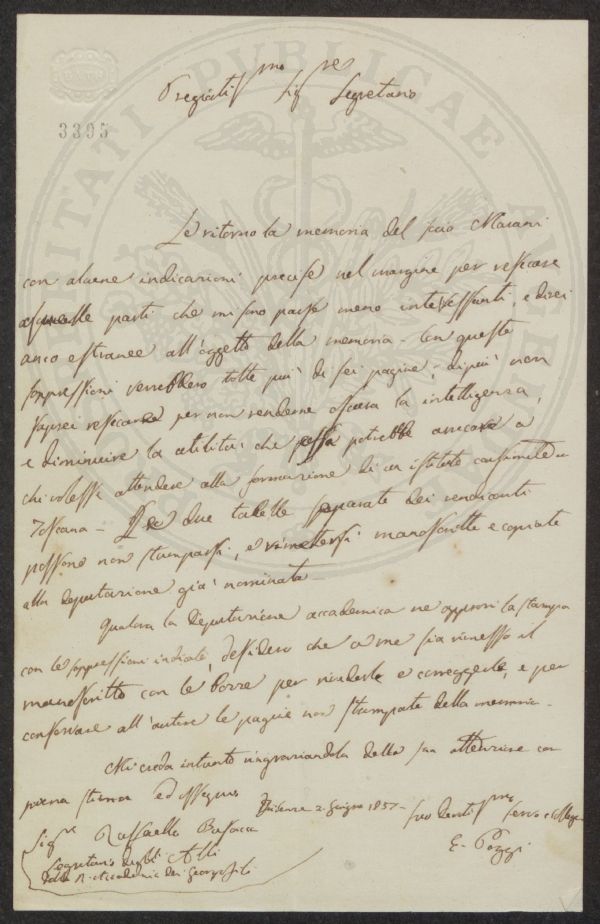 Pregiatiss.mo Sig.re Segretario
3395
Le ritorno la memoria del suo Mariani
con alcune indicazioni precise nel margine per resecare
quelle parti che mi sono parse meno interessanti, e direi
anco estranee all'oggetto della memoria - Con queste
soppressioni verrebbero tolte più di sei pagine, di più non
saprei resecare per non renderne oscura la intelligenza,
e diminuire la utilità, che essa potrebbe ancora a
chi volesse attendere alla formazione di un istituto consimile in
Toscana - Le due tabelle separate dei rendiconti
possono non stamparsi, e rimettersi manoscritte e copiate
alla deputazione già nominata -
Qualora la Deputazione accademica ne approvi la stampa
con le soppressioni indicate, desidero che a me sia rimesso il
manoscritto con le bozze per rivederle e correggerle, e per
conservare all'autore le pagine non stampate della memoria -
Mi creda intanto ringraziandola della sua attenzione con
piena stima ed ossequio
Firenze 2. Giugno 1857 -
suo devotiss.mo servo e Collega
E. Poggi
Sig.re Raffaello Busacca
Segretario degli Atti
della R. Accademia dei Georgofili